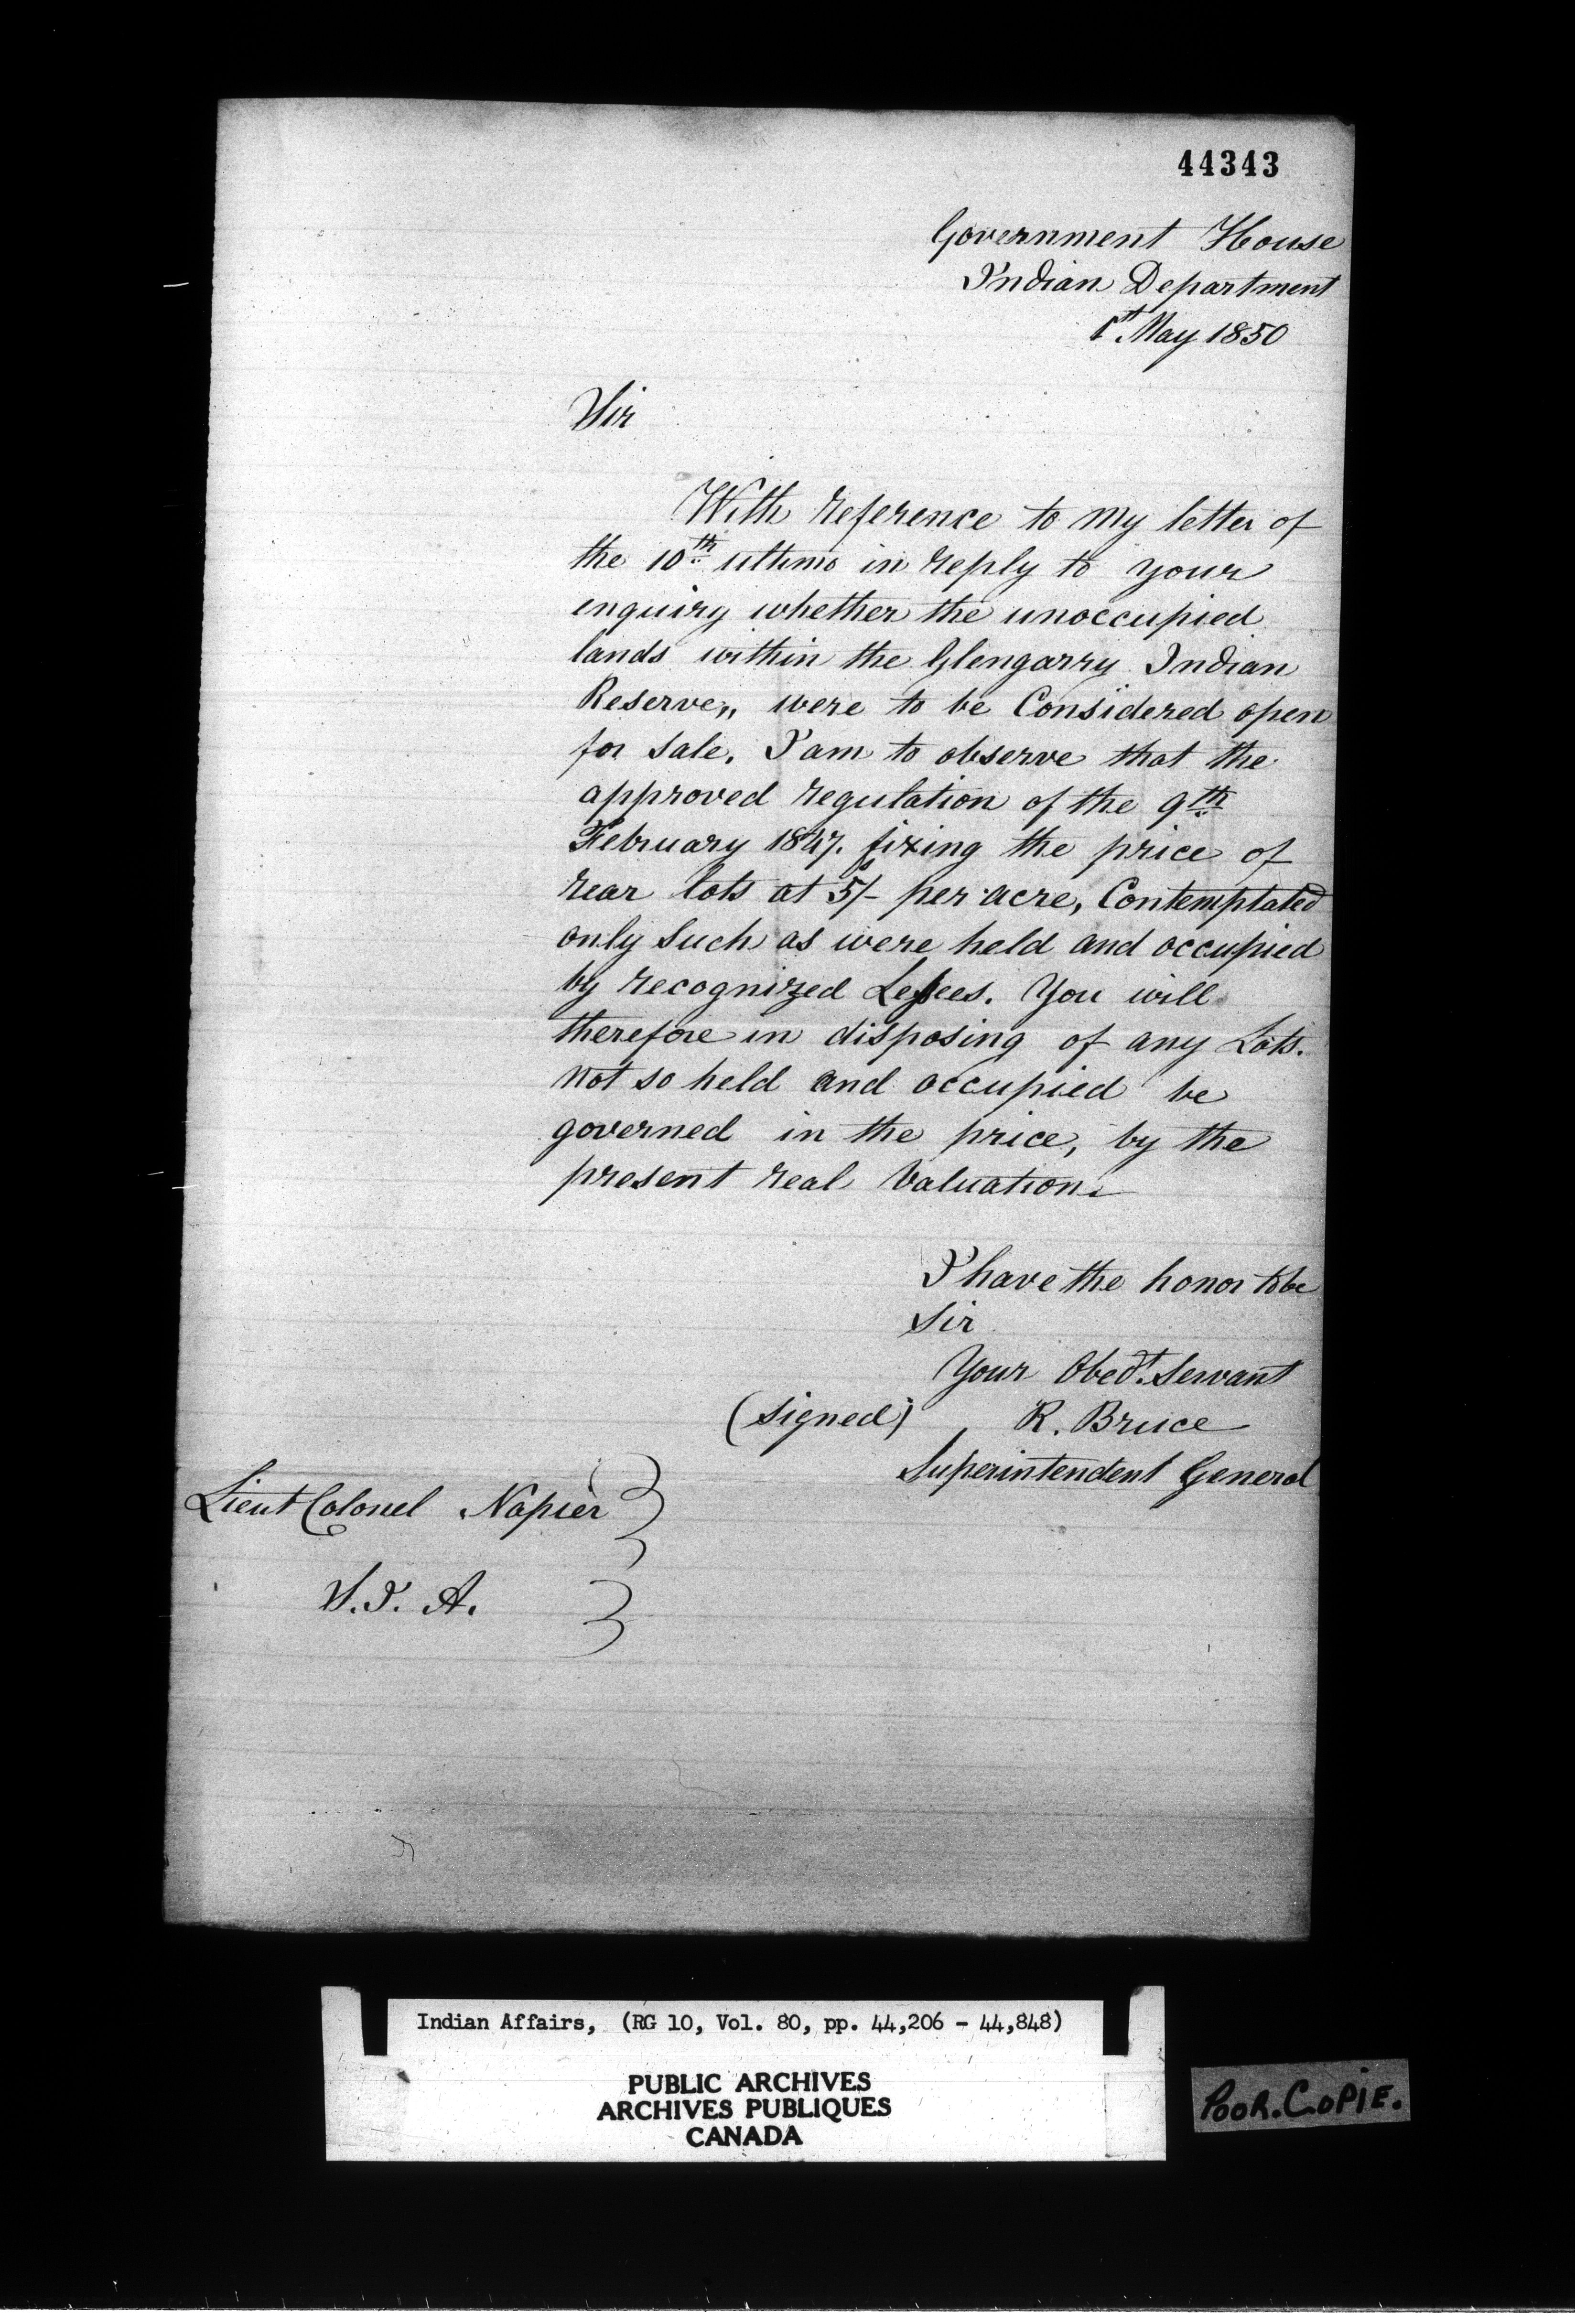 44343
Government House
Indian Department
1st. May 1850
Sir
With reference to my letter of
the 10th ultimo in reply to your
enquiry whether the unoccupied
lands within the Glengarry Indian
Reserve,, were to be Considered open
for sale. I am to observe that the
approved regulation of the 9th
February 1847. fixing the price of
rear lots at 5/- per acre, Contemplated
only such as were held and occupied
by recognized Lessees. You will
therefore in disposing of any Lots.
not so held and occupied be
governed in the price, by the
present real Valuation.
I have the honor to be
Sir
Your Obedt. Servant
(signed) R. Bruce
Superintendent General
Lieut Colonel Napier
S. I. A.
Indian Affairs, (RG 10, Vol. 80, pp. 44,206 - 44,848)
PUBLIC ARCHIVES
ARCHIVES PUBLIQUES
CANADA
POOR.COPIE.